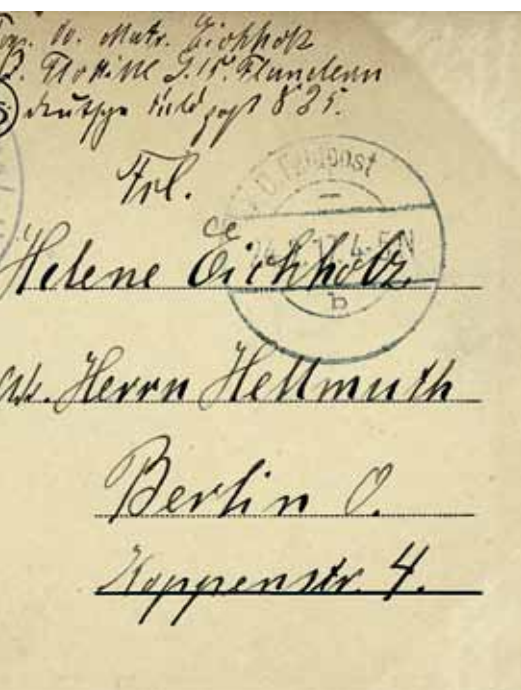 Matr. Eichholz
Flottille Flandern
deutsche Feldpost 835.
Frl.
Feldpost
4-5N
b
Helene Eichholz
Herrn Hellmuth
Berlin O.
Koppenstr. 4.